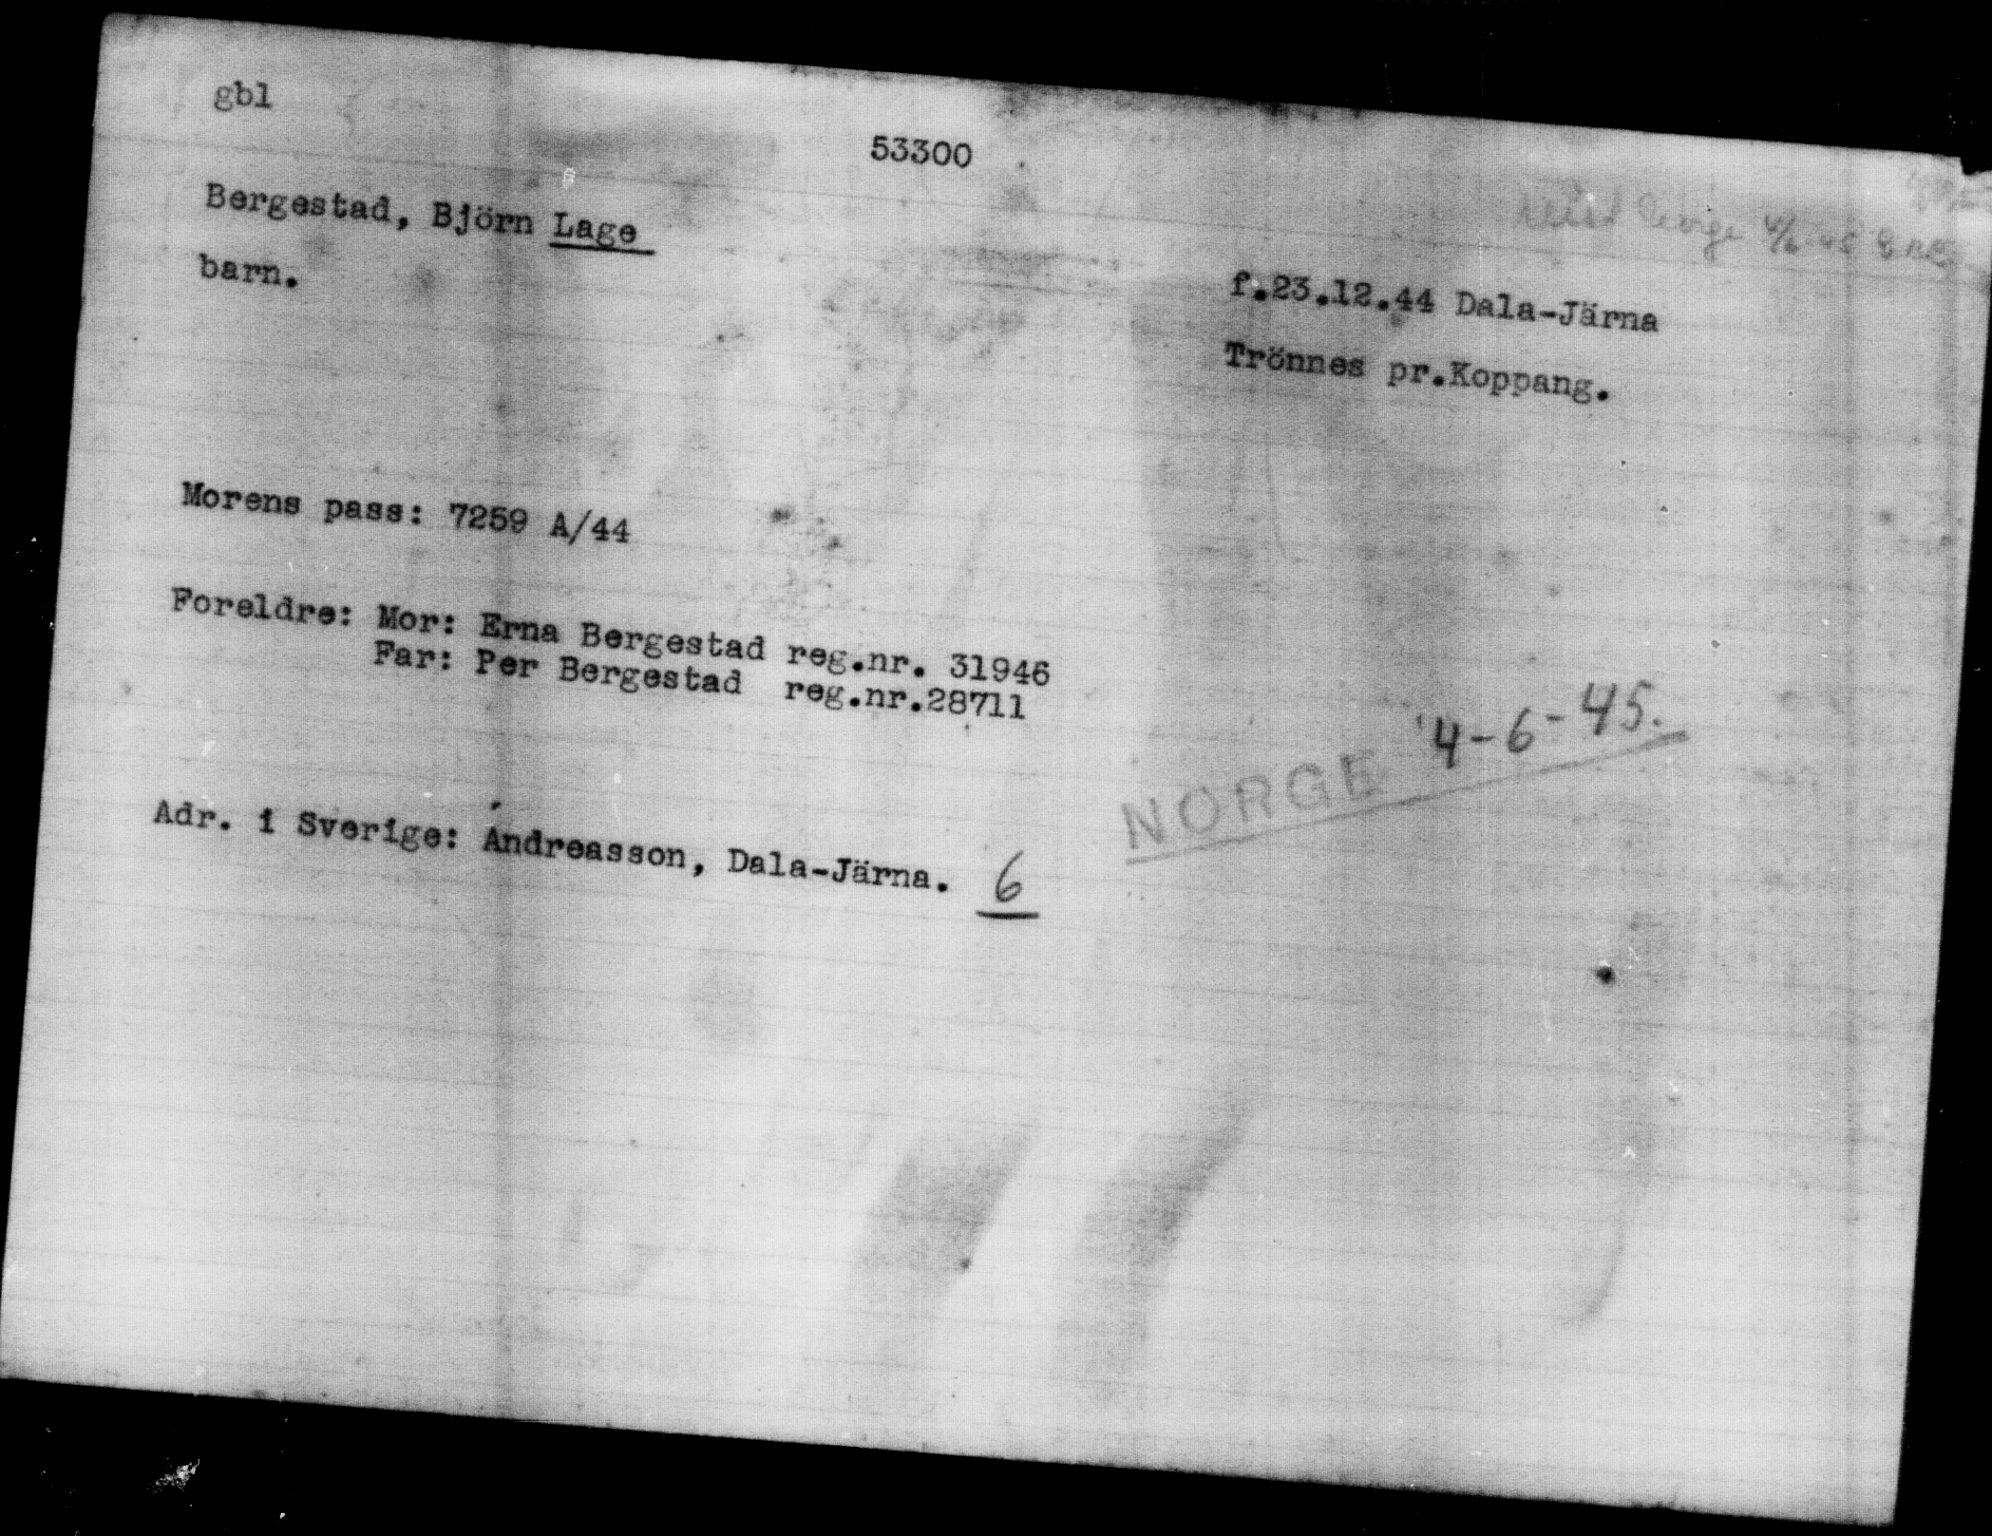 gbl
53300
Bergestad, Björn Lage
barn.
Norge 4/6 45
f.23.12.44 Dala-Järna
Trönnes pr.Koppang.
Morens pass: 7259 A/44
Foreldre: Mor: Erna Bergestad reg.nr. 31946
Far: Per Bergestad reg.nr.28711
NORGE 4-6-45.
Adr. i Sverige: Andreasson, Dala-Järna. 6